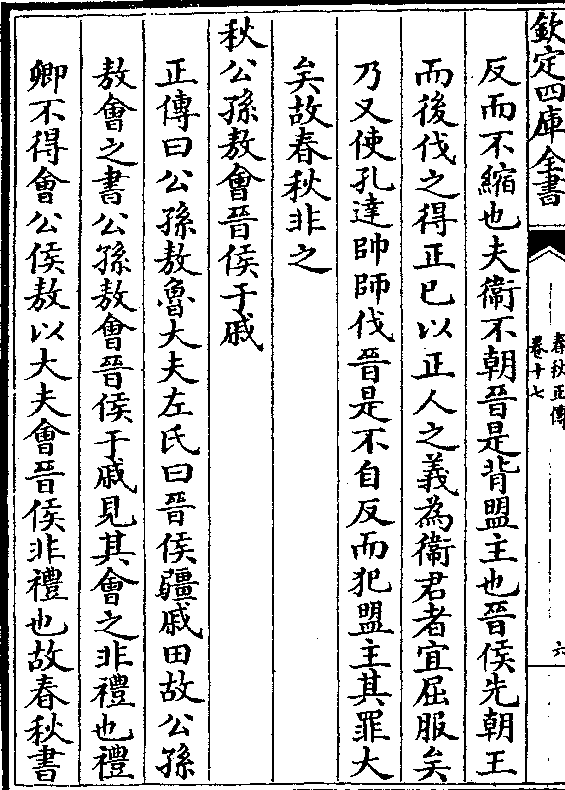 欽定四庫全書
春秋正傳
卷十七
六
反而不縮也夫衞不朝晉是背盟主也晉侯先朝王
而後伐之得正已以正人之義為衞君者宜屈服矣
乃又使孔達帥師伐晉是不自反而犯盟主其罪大
矣故春秋非之
秋公孫敖會晉侯于戚
正傳曰公孫敖魯大夫左氏曰晉侯疆戚田故公孫
敖會之書公孫敖會晉侯于戚見其會之非禮也禮
卿不得會公侯敖以大夫會晉侯非禮也故春秋書